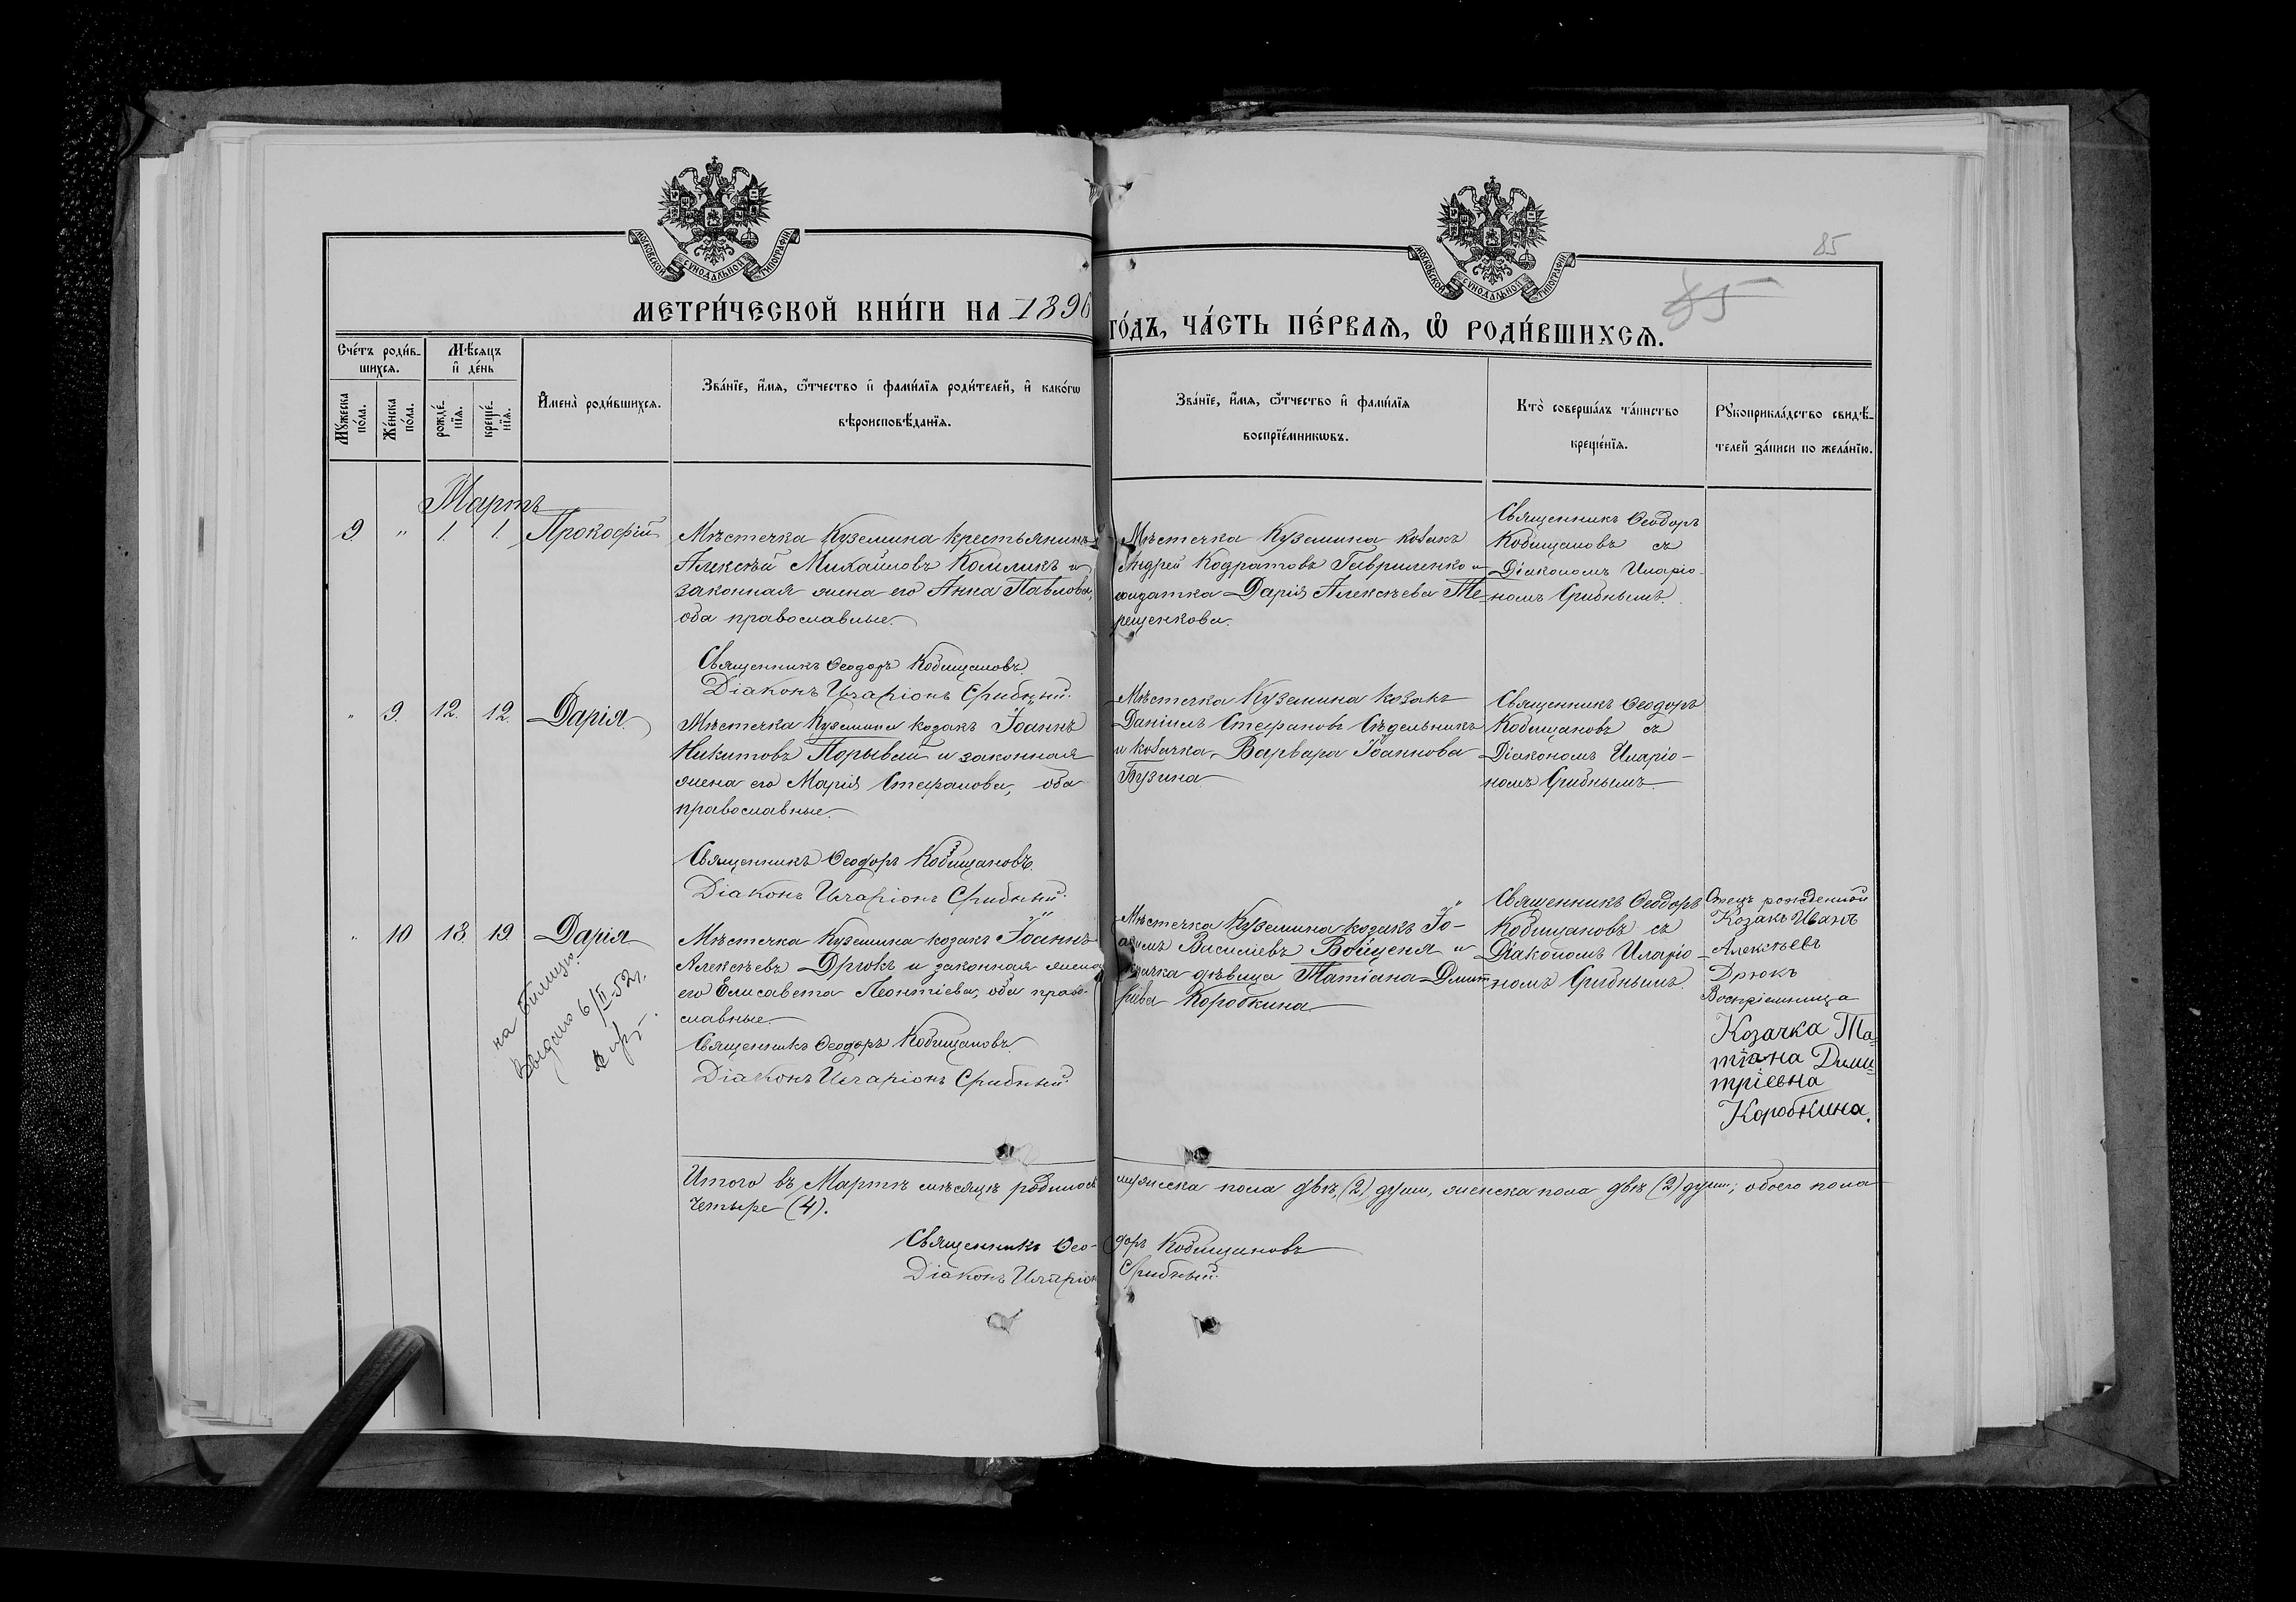 МОСКОВСКОЙ СѴНОДАЛЬНОЙ ТИПОГРАФІИ
МОСКОВСКОЙ СѴНОДАЛЬНОЙ ТИПОГРАФІИ
85
85
МЕТРИ́ЧЕСКОЙ КНИ́ГИ НА 1896
ГО́ДЪ, ЧА́СТЬ ПЕ́РВАѦ, Ѽ РОДИ́ВШИХСѦ.
Сче́тъ роди́в-
шихсѧ.
Мѣ́сѧцъ
и҆ де́нь
Мꙋ́жеска
по́ла.
Же́нска
по́ла.
рожде́-
нїѧ.
креще́-
нїѧ.
И҆мена̀ роди́вшихсѧ.
Зва́нїе, и҆́мѧ, ѻ҆́тчество и҆ фами́лїѧ роди́телей, и҆ како́гѡ
вѣроисповѣ́данїѧ.
Зва́нїе, и҆́мѧ, ѻ҆́тчество и҆ фами́лїѧ
воспрїе́мникѡвъ.
Кто̀ соверша́лъ та́инство
креще́нїѧ.
Рꙋкоприкла́дство свидѣ́-
телей за́писи по жела́нїю.
Мартъ
9. " 1. 1. Прокофій
Мѣстечка Куземина крестьянинъ
Алексѣй Михайловъ Комликъ и
законная жена его Анна Павлова,
оба православные.
Священникъ Ѳеодоръ Кобищановъ
Діаконъ Иларіонъ Срибный.
Мѣстечка Куземина козакъ
Андрей Кодратовъ Гавриленко и
солдатка Дарія Алексѣева Те-
рещенкова.
Священникъ Ѳеодоръ
Кобищановъ съ
Діакономъ Иларіо-
номъ Срибнымъ.
" 9. 12. 12. Дарія
Мѣстечка Куземина козакъ Іоаннъ
Никитовъ Порывай и законная
жена его Марія Стефанова, оба
православные.
Священникъ Ѳеодоръ Кобищановъ.
Діаконъ Иларіонъ Срибный.
Мѣстечка Куземина козакъ
Даніилъ Стефановъ Сѣдельникъ
и козачка Варвара Іоаннова
Бузина
Священникъ Ѳеодоръ
Кобищановъ съ
Діакономъ Иларіо-
номъ Срибнымъ
" 10 18. 19 Дарія
Мѣстечка Куземина козакъ Іоаннъ
Алексѣевъ Дрюкъ и законная жена
его Елисавета Леонтіева, оба право-
славные.
Священникъ Ѳеодоръ Кобищановъ
Діаконъ Иларіонъ Срибный.
Мѣстечка Куземина козакъ Іо-
Василіевъ Войщеня и
козачка дѣвица Татіана Дмит-
ріева Коробкина
Священникъ Ѳеодоръ
Кобищановъ съ
Діакономъ Иларіо-
номъ Срибнымъ.
Отецъ рожденной
Козакъ Иванъ
Алексѣевъ
Дрюкъ
Воспріемница
Козачка Та-
тіана Дими-
тріевна
Коробкина.
на
6/II-52г.
Итого въ Мартѣ мѣсяцѣ родилось мужеска пола двѣ, (2) души, женска пола двѣ (2) души; обоего пола
четыре (4).
Священникъ Ѳео-доръ Кобищановъ
Діаконъ Иларіон Срибный.